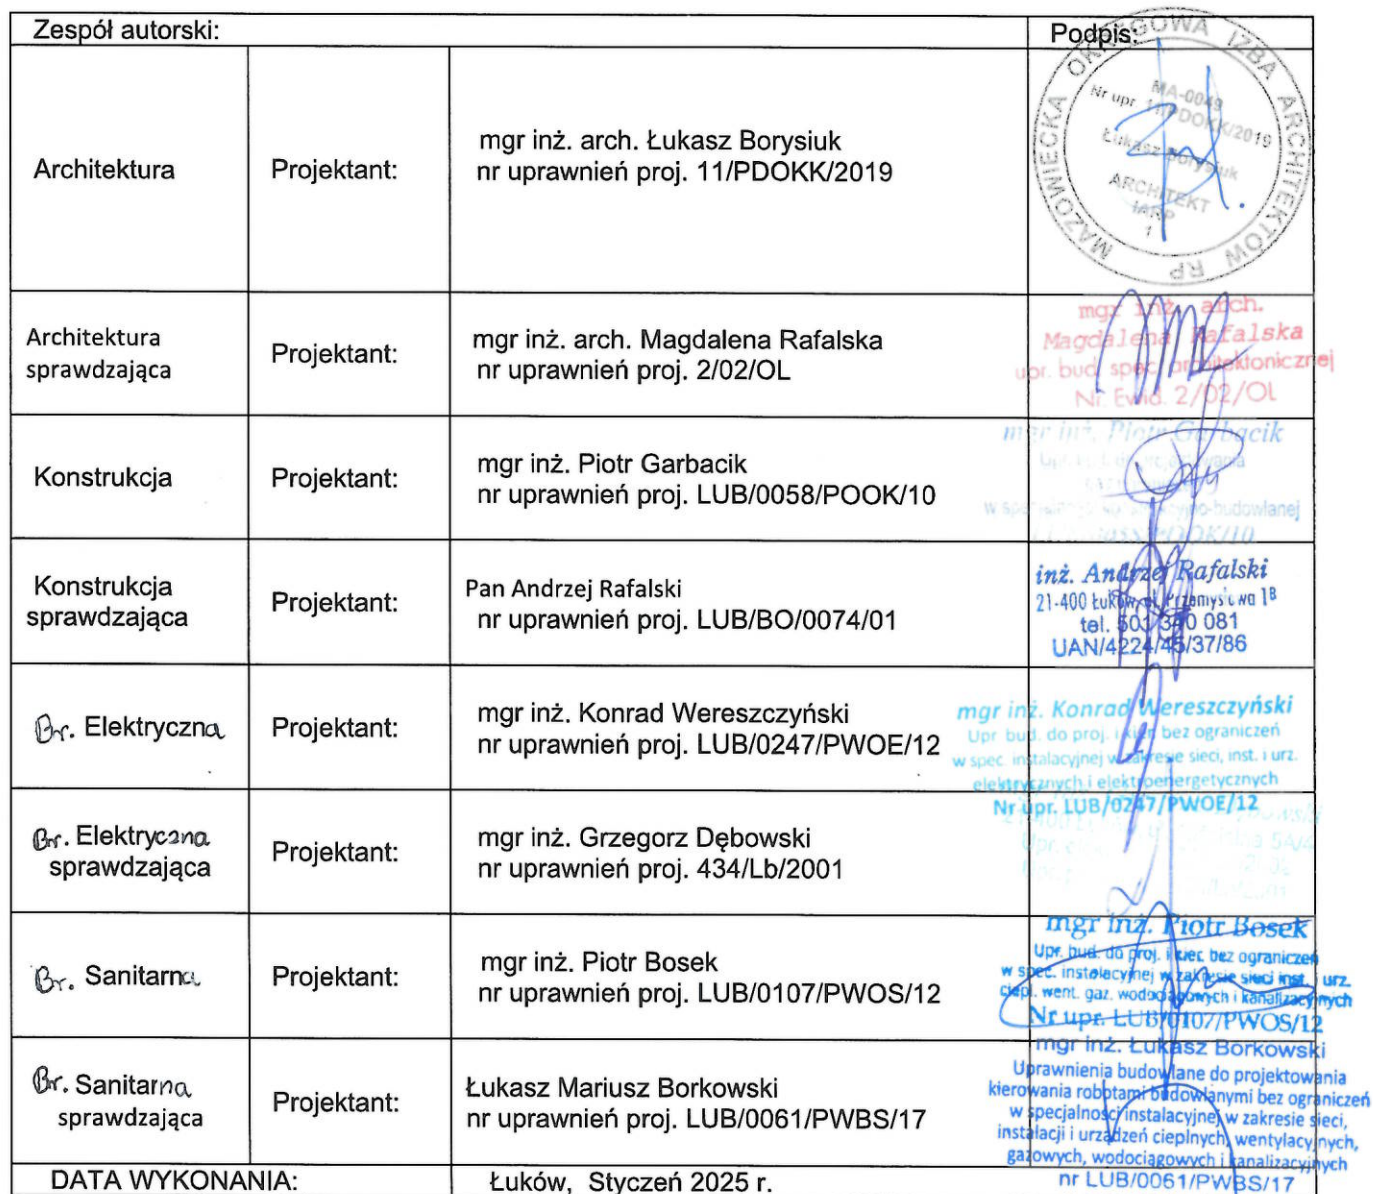 Zespół autorski:
Podpis:
Architektura
Projektant:
mgr inż. arch. Łukasz Borysiuk
nr uprawnień proj. 11/PDOKK/2019
MAZOWIECKA OKRĘGOWA IZBA ARCHITEKTÓW RP
MA-0049
Nr upr. 11/PDOKK/2019
Łukasz Borysiuk
ARCHITEKT
IARP
1
Architektura
sprawdzająca
Projektant:
mgr inż. arch. Magdalena Rafalska
nr uprawnień proj. 2/02/OL
mgr inż. arch.
Magdalena Rafalska
upr. bud. spec. architektonicznej
Nr Ewid. 2/02/OL
Konstrukcja
Projektant:
mgr inż. Piotr Garbacik
nr uprawnień proj. LUB/0058/POOK/10
mgr inż. Piotr Garbacik
Konstrukcja
sprawdzająca
Projektant:
Pan Andrzej Rafalski
nr uprawnień proj. LUB/BO/0074/01
inż. Andrzej Rafalski
21-400 Łuków, ul. Przemysłowa 1B
tel. 501 340 081
UAN/4224/45/37/86
Br. Elektryczna
Projektant:
mgr inż. Konrad Wereszczyński
nr uprawnień proj. LUB/0247/PWOE/12
mgr inż. Konrad Wereszczyński
Upr. bud. do proj. i kier. bez ograniczeń
w spec. instalacyjnej w zakresie sieci, inst. i urz.
elektrycznych i elektroenergetycznych
Nr upr. LUB/0247/PWOE/12
Br. Elektryczna
sprawdzająca
Projektant:
mgr inż. Grzegorz Dębowski
nr uprawnień proj. 434/Lb/2001
Br. Sanitarna
Projektant:
mgr inż. Piotr Bosek
nr uprawnień proj. LUB/0107/PWOS/12
mgr inż. Piotr Bosek
Upr. bud. do proj. i kier. bez ograniczeń
w spec. instalacyjnej w zakresie sieci inst. i urz.
ciepl. went. gaz. wodociągowych i kanalizacyjnych
Nr upr. LUB/0107/PWOS/12
Br. Sanitarna
sprawdzająca
Projektant:
Łukasz Mariusz Borkowski
nr uprawnień proj. LUB/0061/PWBS/17
mgr inż. Łukasz Borkowski
Uprawnienia budowlane do projektowania
kierowania robotami budowlanymi bez ograniczeń
w specjalności instalacyjnej w zakresie sieci,
instalacji i urządzeń cieplnych, wentylacyjnych,
gazowych, wodociągowych i kanalizacyjnych
nr LUB/0061/PWBS/17
DATA WYKONANIA:
Łuków, Styczeń 2025 r.